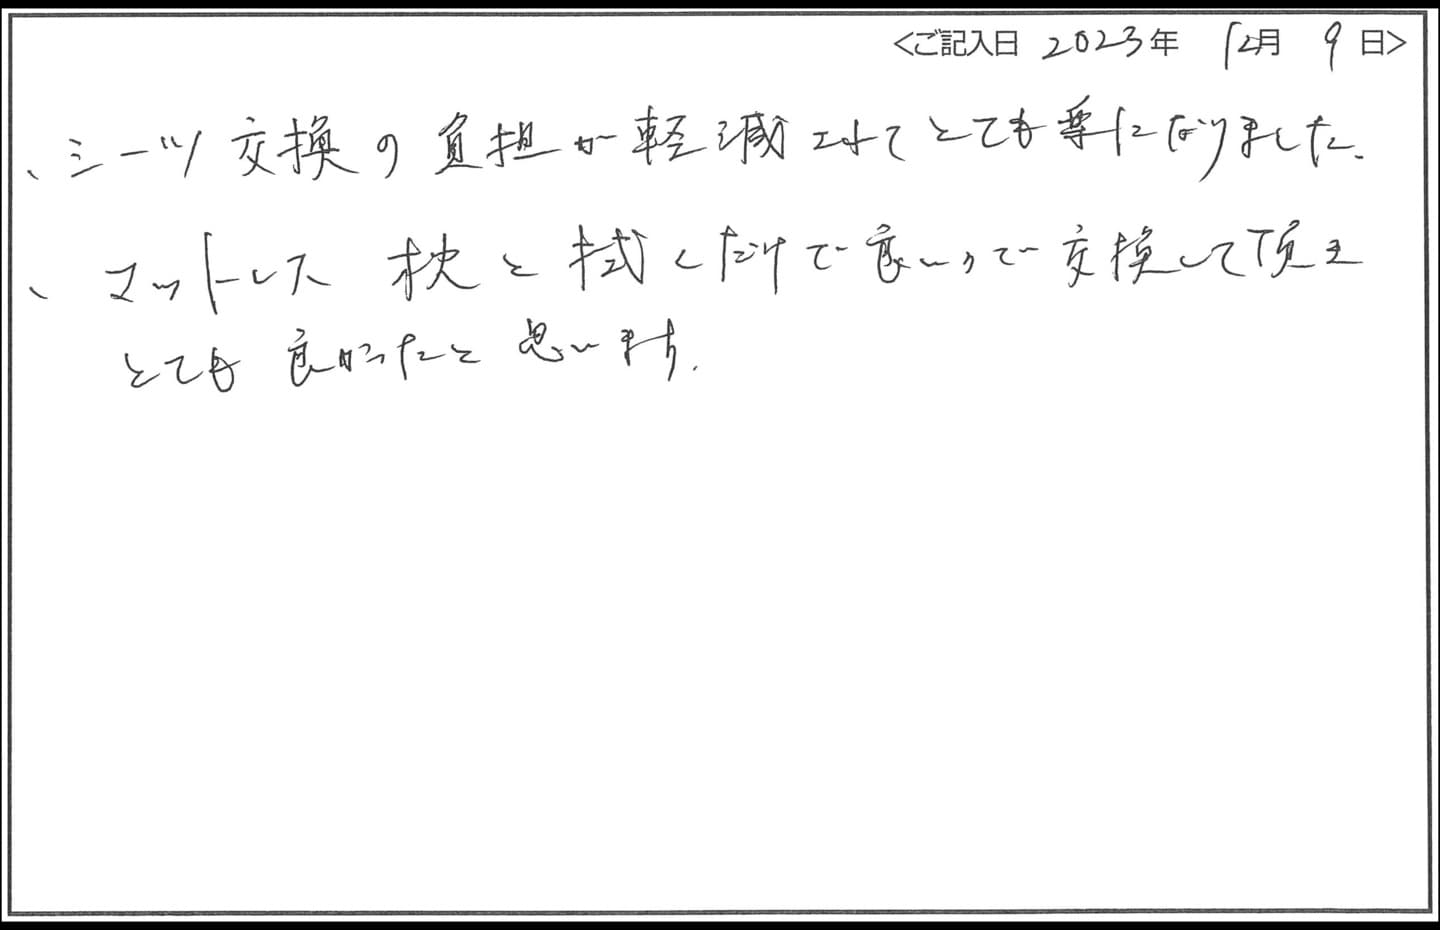 <ご記入日 2023年 12月 9日>
、シーツ交換の負担が軽減されてとても楽になりました.
、マットレス 枕と拭くだけで良いので交換して頂き
とても良かったと思います.